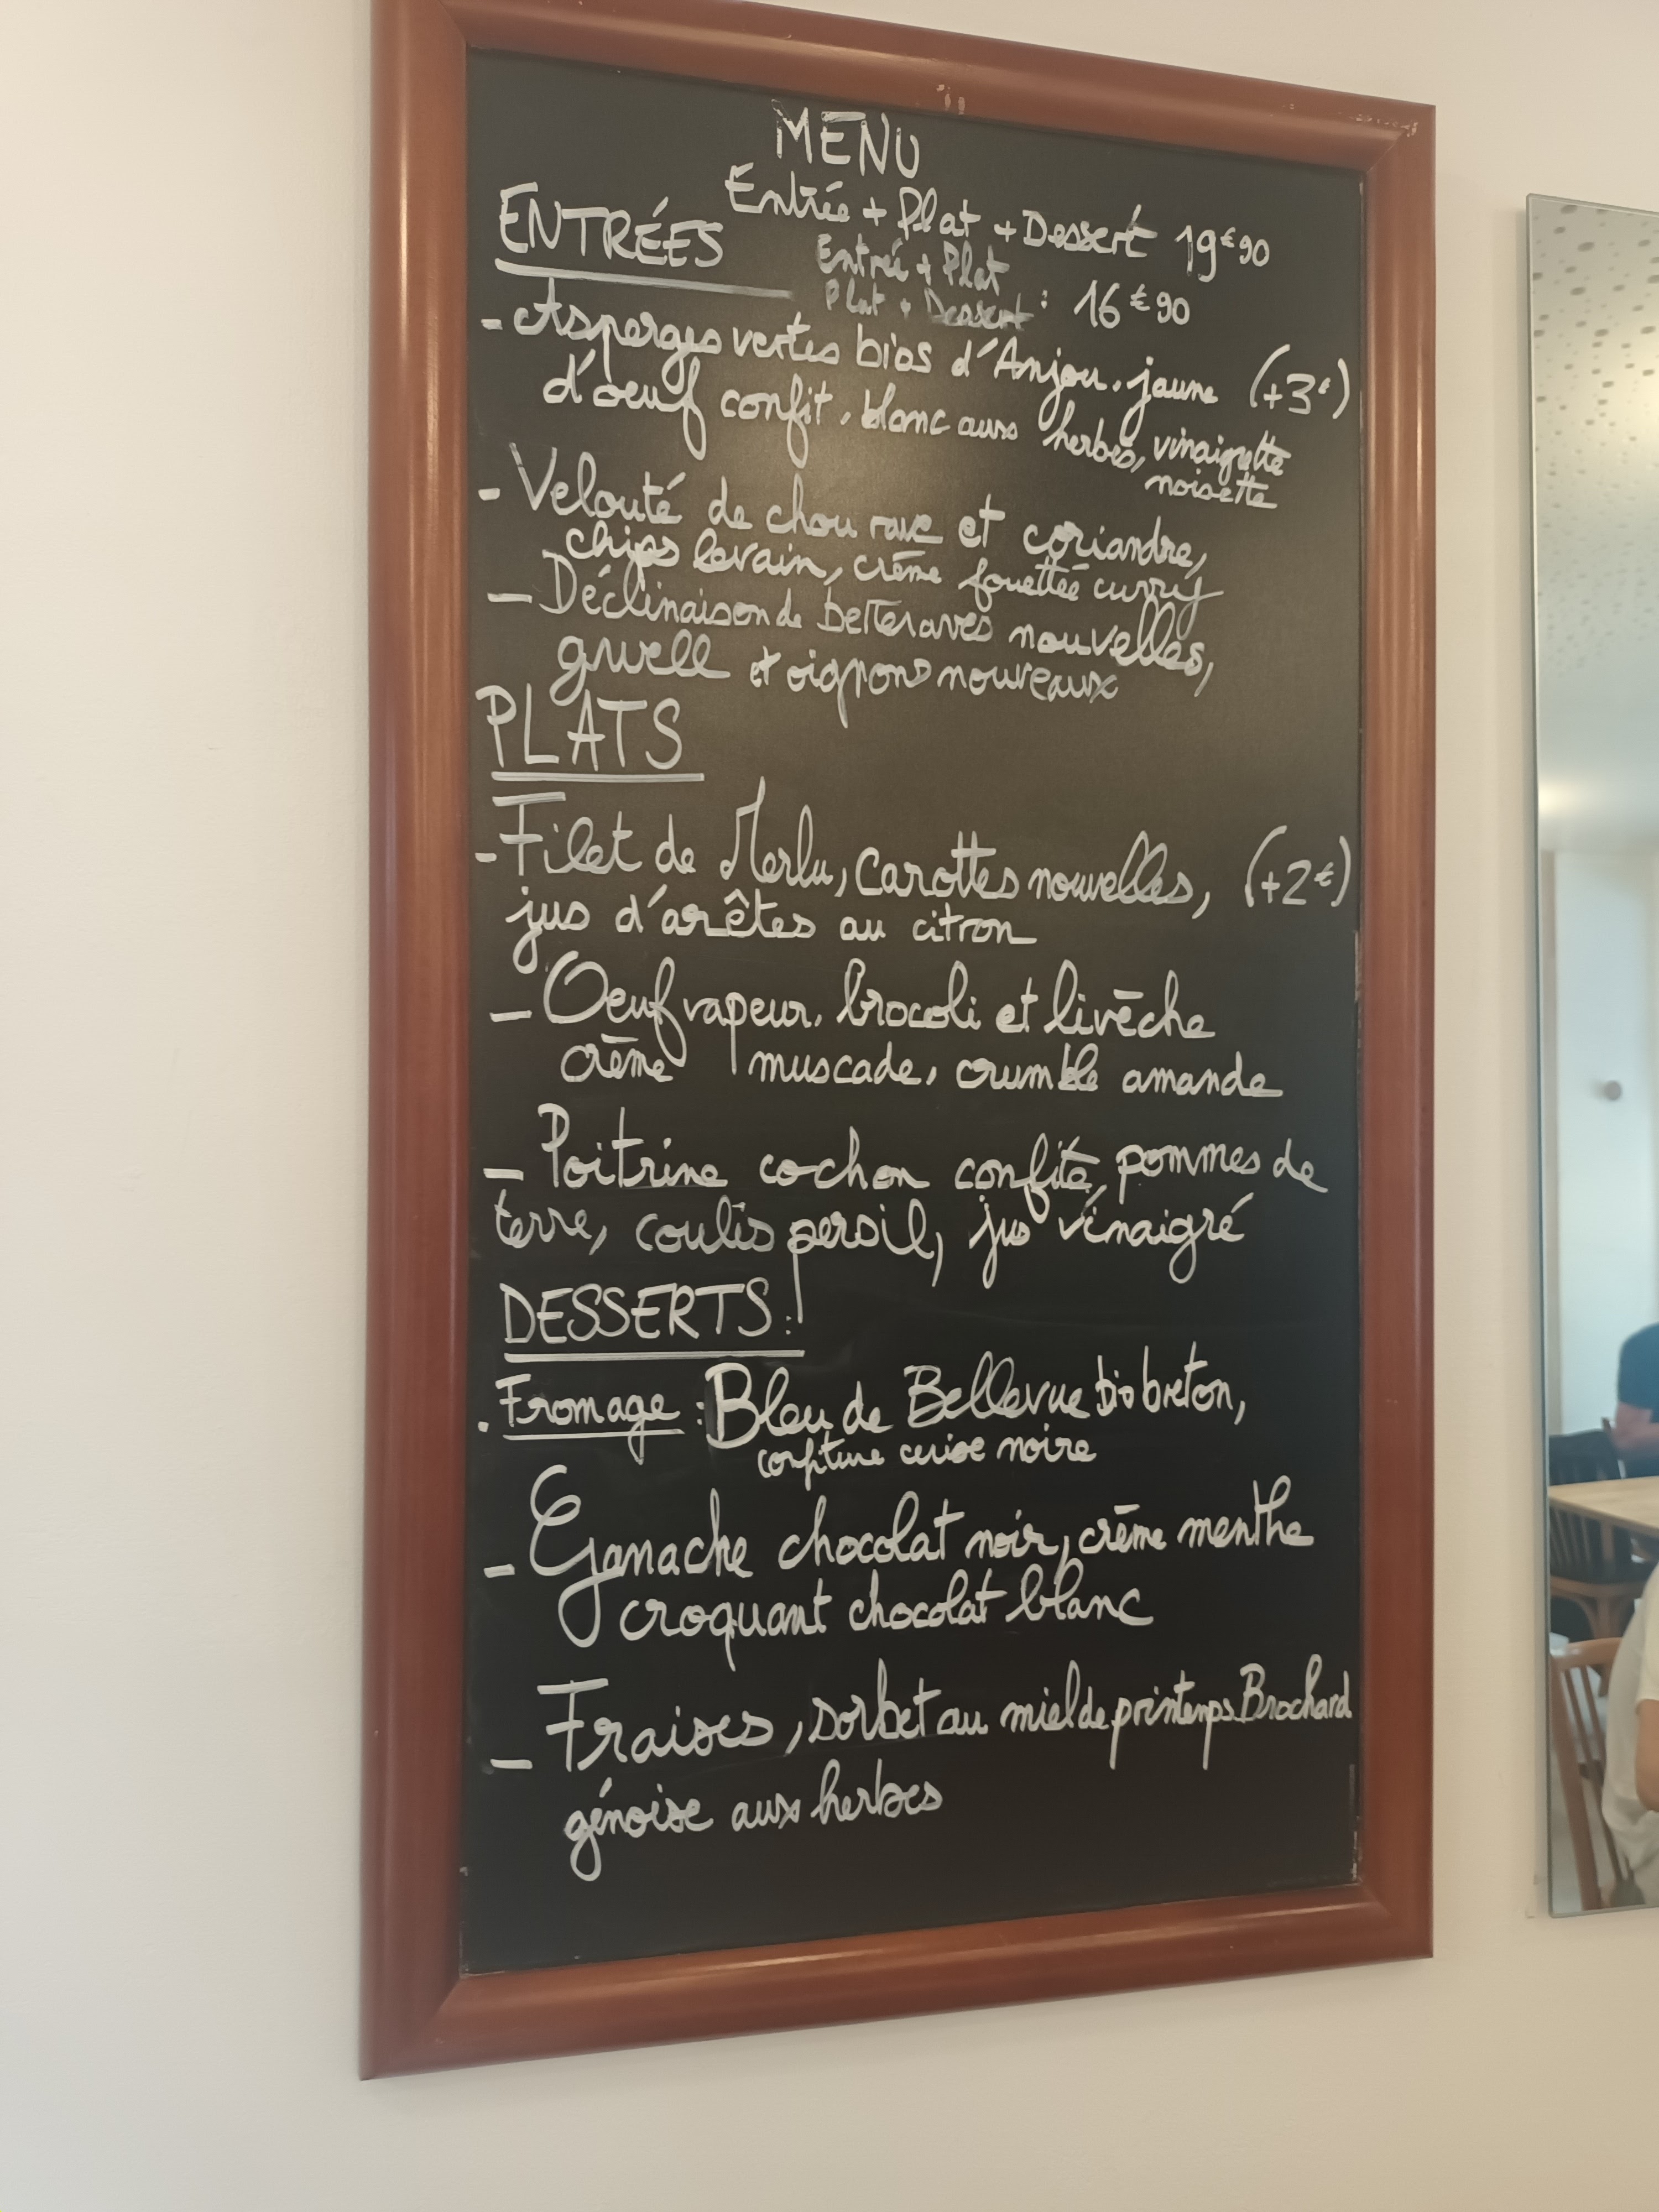 MENU
Entrée + Plat + Dessert 19€90
ENTRÉES
Entrée + Plat
Plat + Dessert : 16€90
- Asperges vertes bios d'Anjou, jaune (+3€)
d'oeuf confit, blanc aux herbes, vinaigrette
noisette
- Velouté de chou rave et coriandre,
chips levain, crème fouettée curry
- Déclinaison de betteraves nouvelles,
gwell et oignons nouveaux
PLATS
- Filet de Merlu, Carottes nouvelles, (+2€)
jus d'arêtes au citron
- Oeuf vapeur, brocoli et livèche
crème muscade, crumble amande
- Poitrine cochon confite, pommes de
terre, coulis persil, jus vinaigré
DESSERTS :
. Fromage : Bleu de Bellevue bio breton,
confiture cerise noire
- Ganache chocolat noir, crème menthe
croquant chocolat blanc
- Fraises, sorbet au miel de printemps Brochard
génoise aux herbes